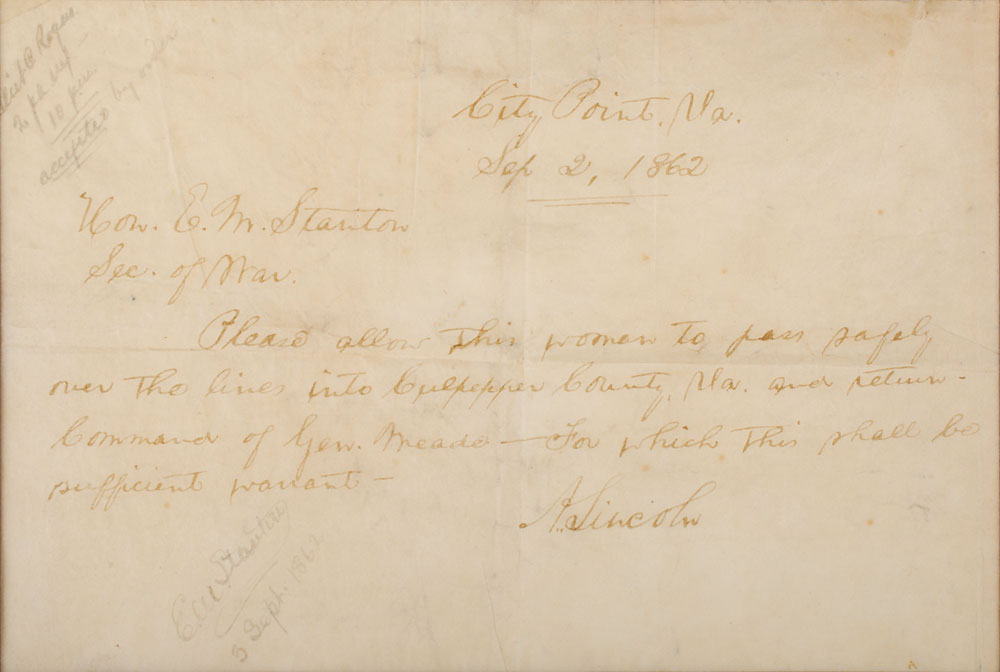 2 ph. up
10 p.m.
accepted by order
City Point, Va.
Sep 2, 1862
Hon. E. M. Stanton
Sec. of War.
Please allow this woman to pass safely
over the lines into Culpepper County, Va. and return -
Command of Gen. Meade — For which this shall be
sufficient warrant —
A. Lincoln
E. M. Stanton
3 Sept. 1862